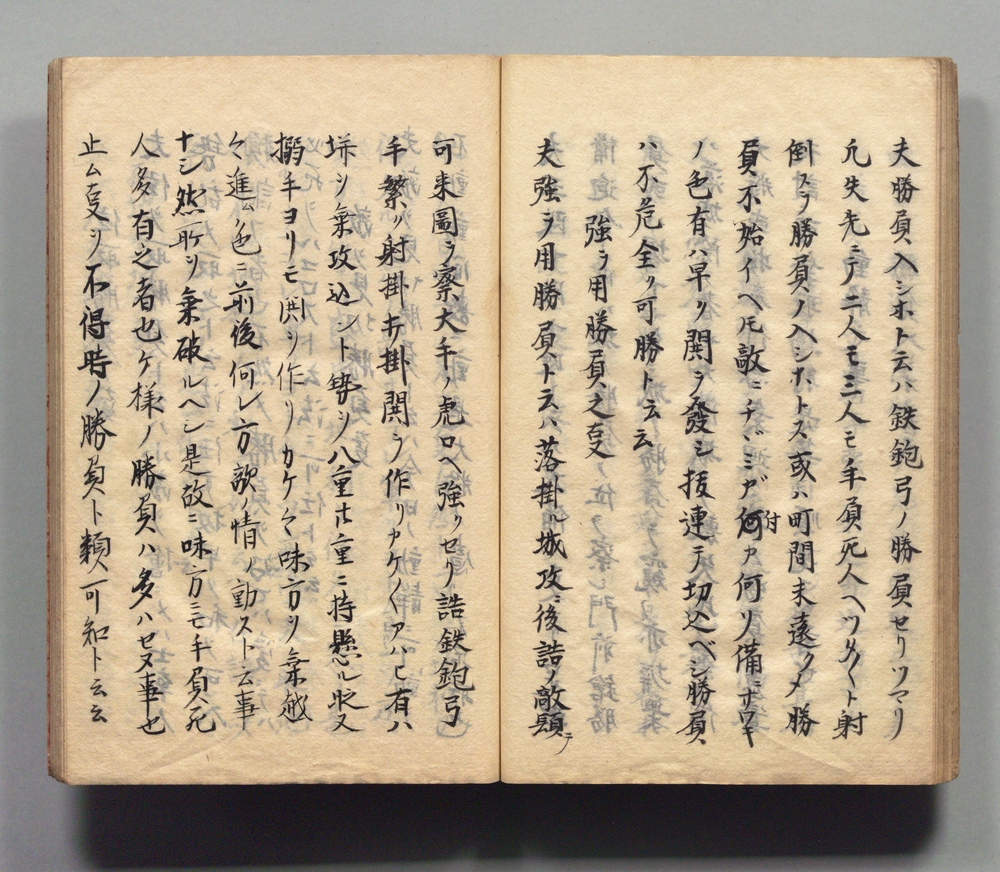 夫勝負入シホト云ハ鉄鉋弓ノ勝負セリツマリ
九失先ニテ二人モ三人モ手負死人ヘツタ〱ト射
倒スヲ勝負ノ入シホトス或ハ町間末遠クメ勝
負不始イヘ𪜈敵ニチヾミガ付カ何ソ備ニサワキ
ノ色有ハ早ク閧ヲ發シ抜連テ切込ベシ勝負
ハ不危全ク可勝ト云云
強ヲ用勝負之叓
夫強ヲ用勝負ト云ハ落掛ル城攻ニ後詰ノ敵顕テ
可来圖ヲ察大手ノ虎口ヘ強クセリ詰鉄鉋弓
手繁ク射掛弁掛閧ヲ作リカケ〱アハヒ有ハ
塀シ乗攻込ント勢ソ八重十重ニ持懸ル又
搦手ヨリモ閧ソ作リカケ々味方ソ乗越
々進ム色ニ前後何レノ方敵ノ情ノ動スト云事
ナシ然所ソ乗破ルヘシ是故ニ味方ニモ手負死
人多有之者也ケ様ノ勝負ハ多ハセヌ事也
止ム叓ソ不得時ノ勝負ト類可知ト云云